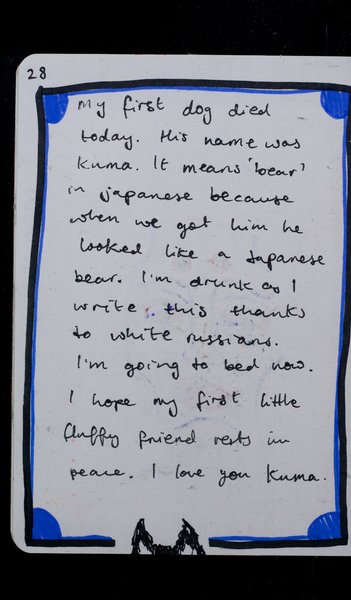 28
My first dog died
today. His name was
Kuma. It means 'bear'
in japanese because
when we got him he
looked like a Japanese
bear. I'm drunk as I
write this thanks
to white russians.
I'm going to bed now.
I hope my first little
fluffy friend rests in
peace. I love you Kuma.